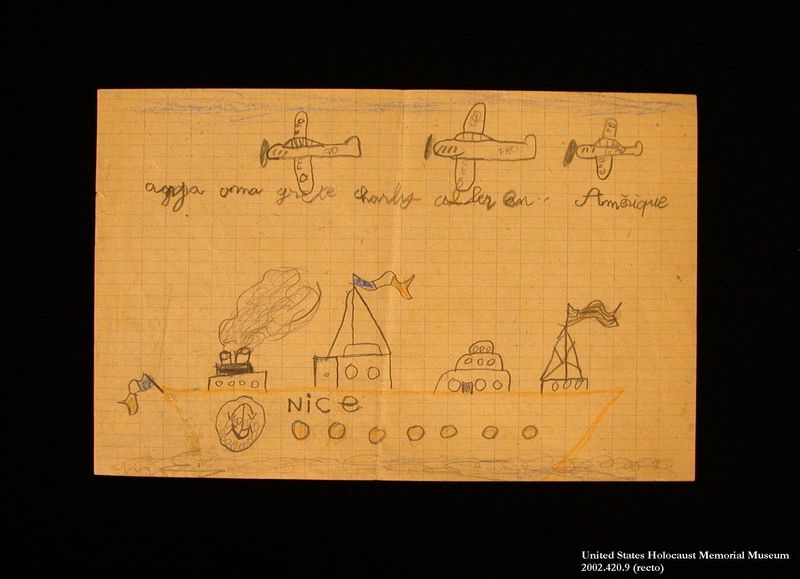 oma grete charly aller en Amérique
NiCe
United States Holocaust Memorial Museum
2002.420.9 (recto)